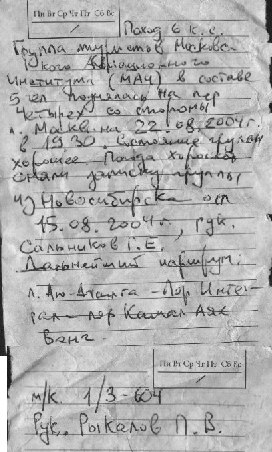 Пн Вт Ср Чт Пт Сб Вс
Поход 6 к.с.
Группа туристов Москов
ского Авиационного
Института (МАИ) в составе
5 чел поднялась на пер
Четырех со стороны
л. на 22.08.2004г.
в 19 30. Состояние группы
хорошее. Погода хорошая
сняли записку группы
из Новосибирска от
15.08.2004г, рук.
Сальников Г.Е.
Дальнейший маршрут:
л. - Пер Инте-
грал - пер
Пн Вт Ср Чт Пт Сб Вс
м/к. 1/3-604
Рук. Рыкалов П.В.